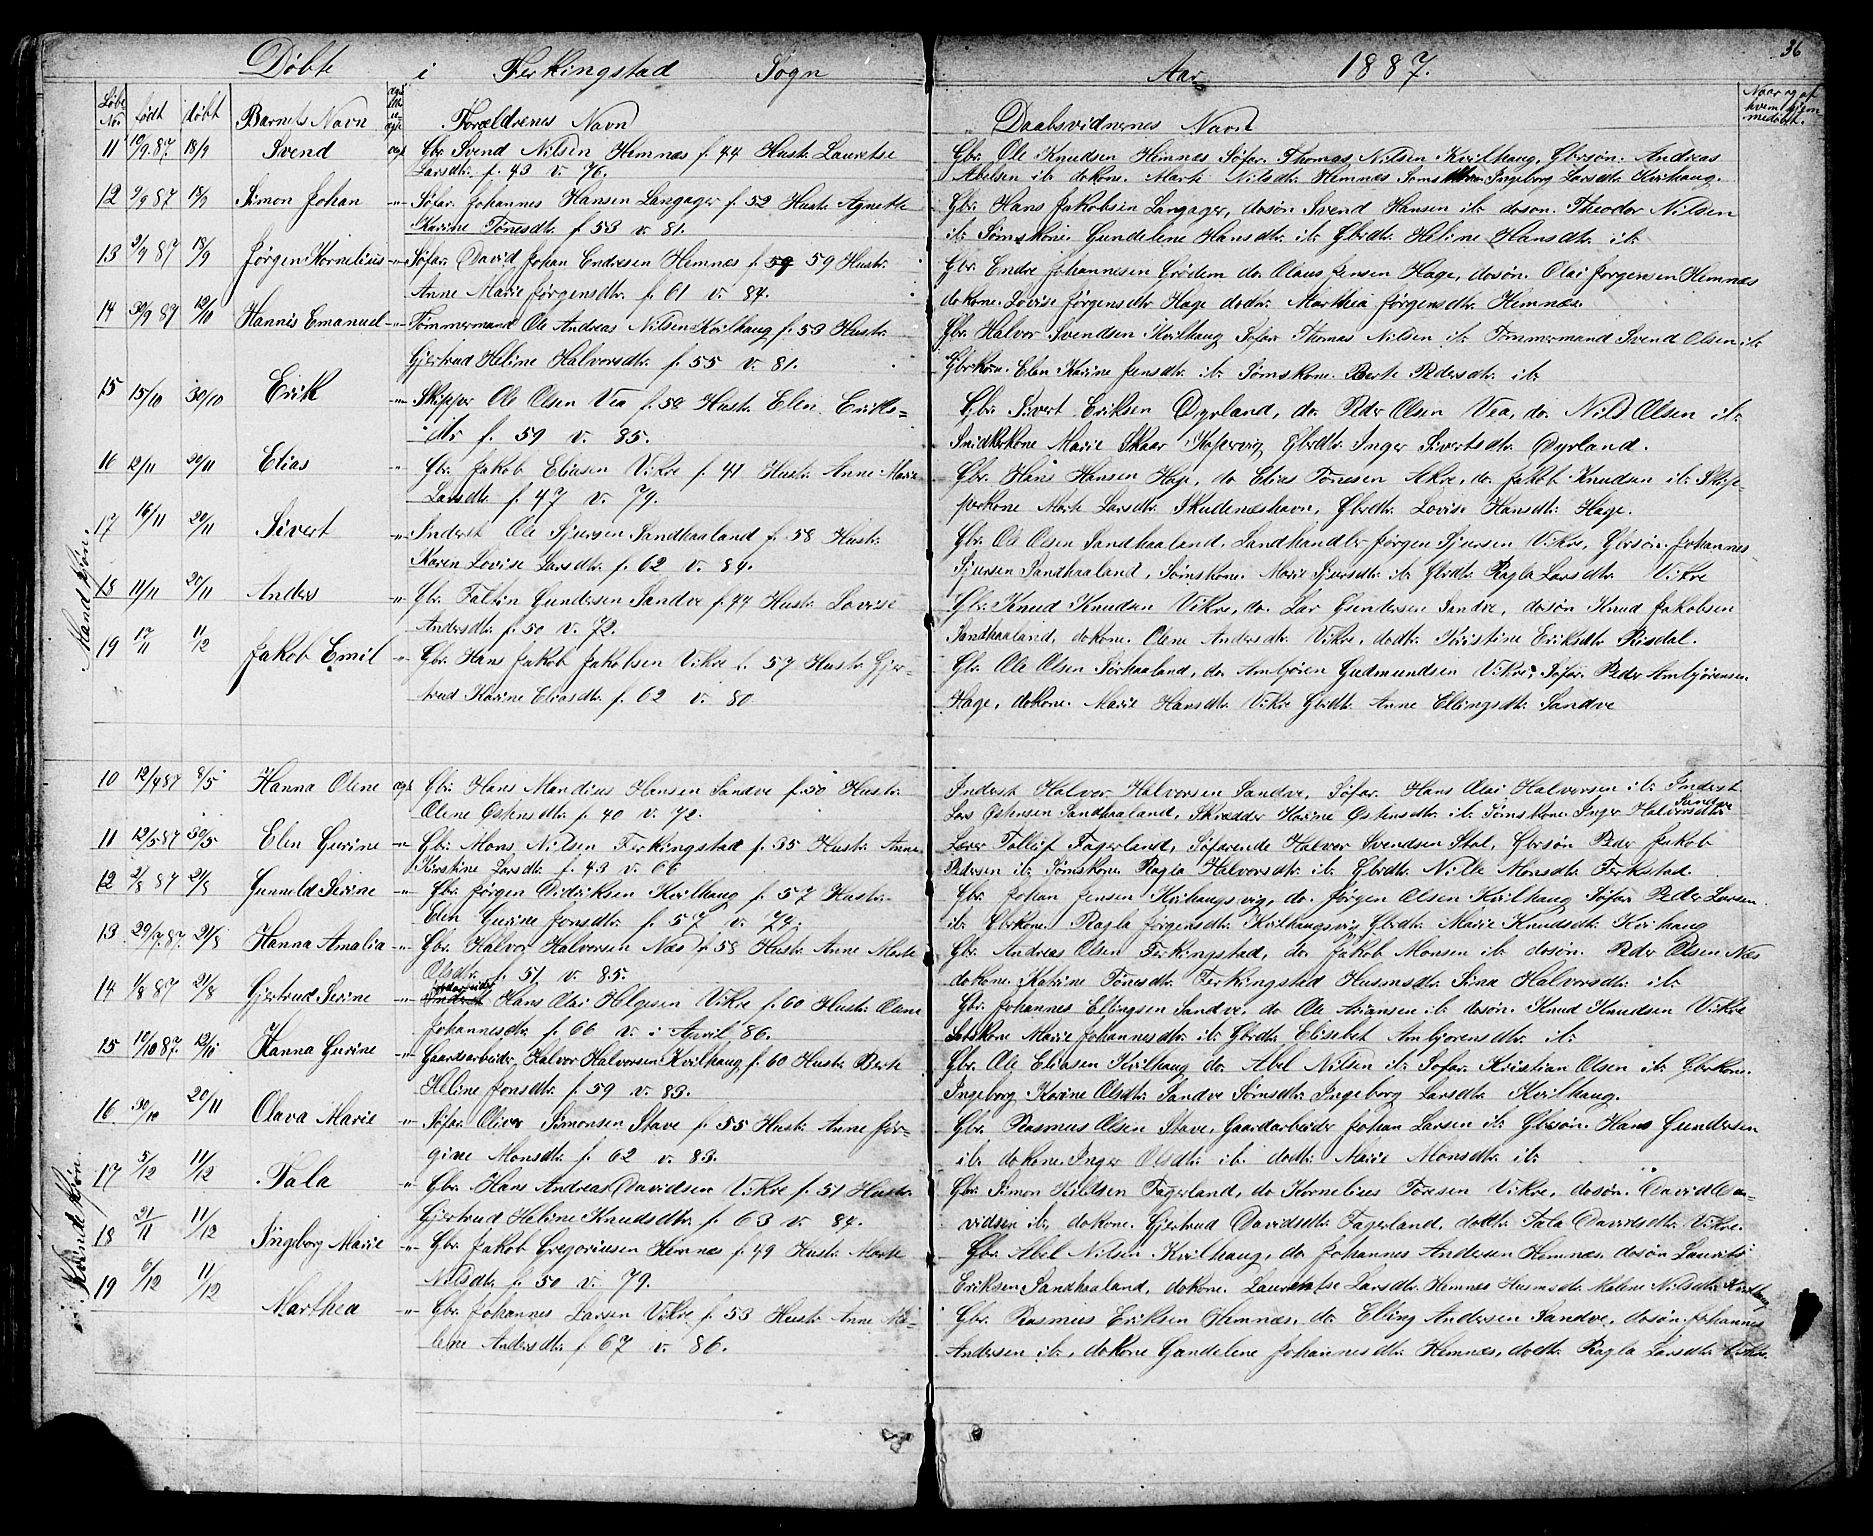 36
Døbte i Ferkingstad Sogn Aar 1887.
Løbe No. født døbt Barnets Navn Forældrenes Navn Daabsvidnernes Navn
Mandkjøn.
11 10/9 87 18/9 Svend Gbr. Svend Nilsen Hemnæs f. 44 Hustr. Lauretse
Larsdtr. f. 43 v. 76.
Gbr. Ole Knudsen Hemnæs Søfar. Thomas Nilsen Kvilhaug, Gbrsøn. Andreas
Abelsen ib. dokone. Marte Nilsdtr. Hemnæs Ingeborg Larsdtr. Kvilhaug.
12 2/9 87 18/9 Simon Johan " Søfar. Johannes Hansen Langager f. 52 Hustr. Agnethe
Karine Tønesdtr. f 53 v. 81.
Gbr. Hans Jakobsen Langager, dosøn Svend Hansen ib. dosøn. Theodor Nilsen
ib. Sømskone. Gundeline Hansdtr. ib. Gbrdtr. Heline Hansdtr. ib.
13 2/9 87 18/9 Jørgen Kornelius " Søfar. David Johan Endresen Hemnæs f. 59 Hustr.
Anne Marie Jørgensdtr. f. 61 v. 84.
Gbr. Endre Johannesen Grødem do. Olaus Jensen Hage, dosøn. Olai Jørgensen Hemnæs
dokone. Lovise Jørgensdtr. Hage dodtr. Marthea Jørgensdtr. Hemnæs.
14 30/9 87 12/10 Hannes Emanuel " Tømmermand Ole Andreas Nilsen Kvilhaug f. 53 Hustr.
Gjertrud Heline Halvorsdtr. f. 55 v. 81.
Gbr. Halvor Svendsen Kvilhaug Søfar. Thomas Nilsen ib. Tømmermand Svend Olsen ib.
Gbrkone. Elen Karine Jensdtr. ib. Sømskone. Berte Pedersdtr. ib
15 15/10 30/10 Erik " Skipper Ole Olsen Vea f. 58 Hustr. Elen Eriks=
dtr. f. 59 v. 85.
Gbr. Sivert Eriksen Dyrland, do. Peder Olsen Vea, do. Nils Olsen ib.
Snidkerkone Marie Skaar Kopervig Gbrdtr. Inger Sivertsdtr. Dyrland.
16 12/11 20/11 Elias " Gbr. Jakob Eliasen Vikre f. 41 Hustr. Anne Marie
Larsdtr. f. 47 v. 79.
Gbr. Hans Hansen Hage, do Elias Tønesen Akre, do. Jakob Knudsen ib. Skip-
perkone Marte Larsdtr. Skudeneshavn, Gbrdtr. Lovise Hansdtr. Hage.
17 16/11 20/11 Sivert " Inderst Ole Sjursen Sandhaaland f. 58 Hustr.
Karen Lovise Larsdtr. f. 62 v. 84.
Gbr. Ole Olsen Sandhaaland, Landhandler Jørgen Sjursen Vikre, Gbrsøn. Johannes
Sjursen Sandhaaland, Sømskone. Marie Sjursdtr. ib. Gbrdtr. Ragla Larsdtr. Vikre
18 11/11 27/11 Anders " Gbr. Faltin Gundersen Sandve f. 44 Hustr. Lovise
Andersdtr. f. 50 v. 72.
Gbr. Knud Knudsen Vikre, do. Lar Gundersen Sandve, dosøn Knud Jakobsen
Sandhaaland, dokone. Olene Andersdtr. Vikre, dodtr. Kristine Eriksdtr. Risdal.
19 17/11 11/12 Jakob Emil " Gbr. Hans Jakob Jakobsen Vikre f. 57 Hustr. Gjer-
trud Karine Eliasdtr. f. 62 v. 80
Gbr. Ole Olsen Sørhaaland, do. Ambjøren Gudmundsen Vikre, Søfar. Peder Ambjørensen
Hage, dokone. Marie Hansdtr. Vikre Gbrdtr. Anne Ellingsdtr. Sandve
Kvindekjøn.
10 12/4 87 8/5 Hanna Olene Gbr. Hans Mandius Hansen Sandve f. 50 Hustr.
Olene Ostensdtr. f. 40 v. 72.
Inderst Halvor Halvorsen Sandve, Søfar. Hans Olai Halvorsen ib. Inderst
Lars Ostensen Sandhaaland, Skrædder Karine Ostensdtr. ib. Sømskone. Inger Halvorsdtr. Sandve
11 12/5 87 30/5 Elen Gurine " Gbr. Mons Nilsen Ferkingstad f. 35 Hustr. Anne
Kirstine Larsdtr. f. 43 v. 66
Lærer Tollef Fagerland, Søfarende Halvor Svendsen Stol, Gbrsøn Peder Jakob
Pedersen ib. Sømskone. Ragla Halvorsdtr. ib. Gbrdtr. Nille Monsdtr. Ferkstad.
12 2/8 87 21/8 Gunnild Serine " Gbr. Jørgen Didriksen Kvilhaug f. 57 Hustr.
Elen Gurine Jonsdtr. f. 57 v. 74.
Gbr. Johan Jensen Kvilhaugsvig, do. Jørgen Olsen Kvilhaug Søfar. Peder Larsen
ib. Gbrkone. Ragla Jørgensdtr. Kvilhaugsvig Gbrdtr. Marie Knudsdtr. Kvilhaug
13 29/7 87. 21/8 Hanna Amalia " Gbr. Halvor Halvorsen Næs f. 58 Hustr. Anne Marte
Olsdtr. f. 51 v. 85.
Gbr. Andreas Olsen Ferkingstad, do Jakob Monsen ib. dosøn. Peder Olsen Næs
dokone. Katrine Tønesdtr. Ferkingstad Husmsdtr. Sina Halvorsdtr. ib.
14 1/8 87 21/8 Gjertrud Serine " Hans Olai Helgesen Vikre f. 60 Hustr. Olene
Johannesdtr. f. 66 v. i April 86.
Gbr. Johannes Ellingsen Sandve, do Ole Ariansen ib. dosøn. Knud Knudsen Vikre
Marie Johannesdtr. ib. Gbrdtr. Elisabet Ambjørensdtr. ib.
15 10/10 87. 12/10 Hanna Gurine " Gaardarbeider Halvor Halvorsen Kvilhaug f. 60 Hustr. Berte
Heline Jonsdtr. f. 59 v. 83.
Gbr. Ole Eliasen Kvilhaug do. Abel Nilsen ib. Søfar. Kristian Olsen ib. Gbrkone.
Ingeborg Karine Olsdtr. Sandve Sømsdtr. Ingeborg Larsdtr. Kvilhaug.
16 30/10 20/11 Olava Marie " Søfar. Oliver Simonsen Stave f. 55 Hustr. Anne Jør-
gine Monsdtr. f. 62 v. 83.
Gbr. Rasmus Olsen Stave, Gaardarbeider Johan Larsen ib. Gbrsøn. Hans Gundersen
ib. dokone. Inger Olsdtr. ib. dodtr. Marie Monsdtr. ib.
17 5/12 11/12 Tala " Gbr. Hans Andreas Davidsen Vikre f. 51 Hustr.
Gjertrud Heline Knudsdtr. f. 63 v. 84.
Gbr. Simon Kildsen Fagerland, do Kornelius Toresen Vikre, dosøn. David Da-
vidsen ib. dokone. Gjertrud Davidsdtr. Fagerland, dodtr. Tala Davidsdtr. Vikre.
18 21/11 11/12 Ingeborg Marie " Gbr. Jakob Gregoriusen Hemnæs f. 49 Hustr. Marte
Nilsdtr. f. 50 v. 79.
Gbr. Abel Nilsen Kvilhaug, do Johannes Andersen Hemnæs, dosøn Laurits
Eriksen Sandhaaland, dokone. Laurentse Larsdtr. Hemnæs Husmsdtr. Malene Nilsdtr. Kvilhaug
19 6/12 11/12 Marthea " Gbr. Johannes Larsen Vikre f. 53 Hustr. Anne Ma-
lene Andersdtr. f 67 v. 86.
Gbr. Rasmus Eriksen Hemnæs, do Elling Andersen Sandve, dosøn. Johannes
Andersen ib., dokone Gundelene Johannesdtr. Hemnæs, dodtr. Ragla Larsdtr. Vikre.